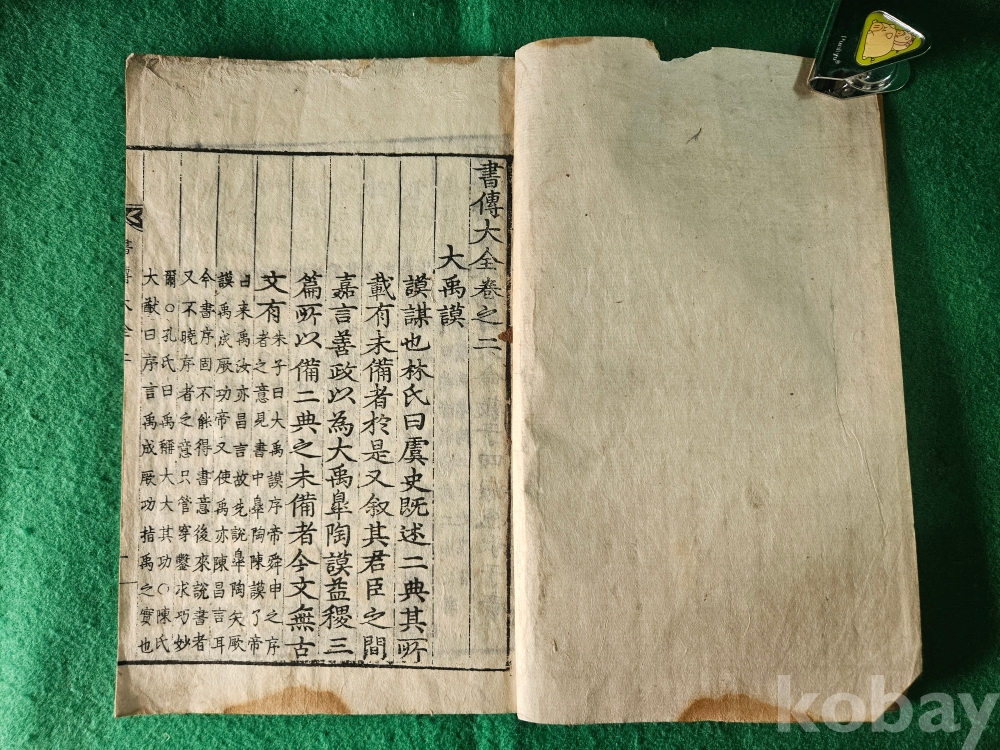 書傳大全卷之二
大禹謨
謨謀也林氏曰虞史既述二典其所
載有未備者於是又叙其君臣之間
嘉言善政以為大禹皐陶謨益稷三
篇所以備二典之未備者今文無古
文有
朱子曰大禹謨序帝舜申之序
者之意見書中皐陶陳謨了帝
曰來禹汝亦昌言故先說皐陶矢厥
謨禹成厥功帝又使禹亦陳昌言耳
今書序固不能得書意後來說書者
又不曉序者之意只管穿鑿求巧妙
爾○孔氏曰禹稱大大其功○陳氏
大猷曰序言禹成厥功指禹之實也
書傳大全二
kobay